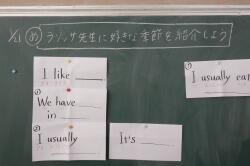 1/21 め ラソサ先生に好きな季節を紹介しよう
I like
We have
in
I usually
It's
I usually eat